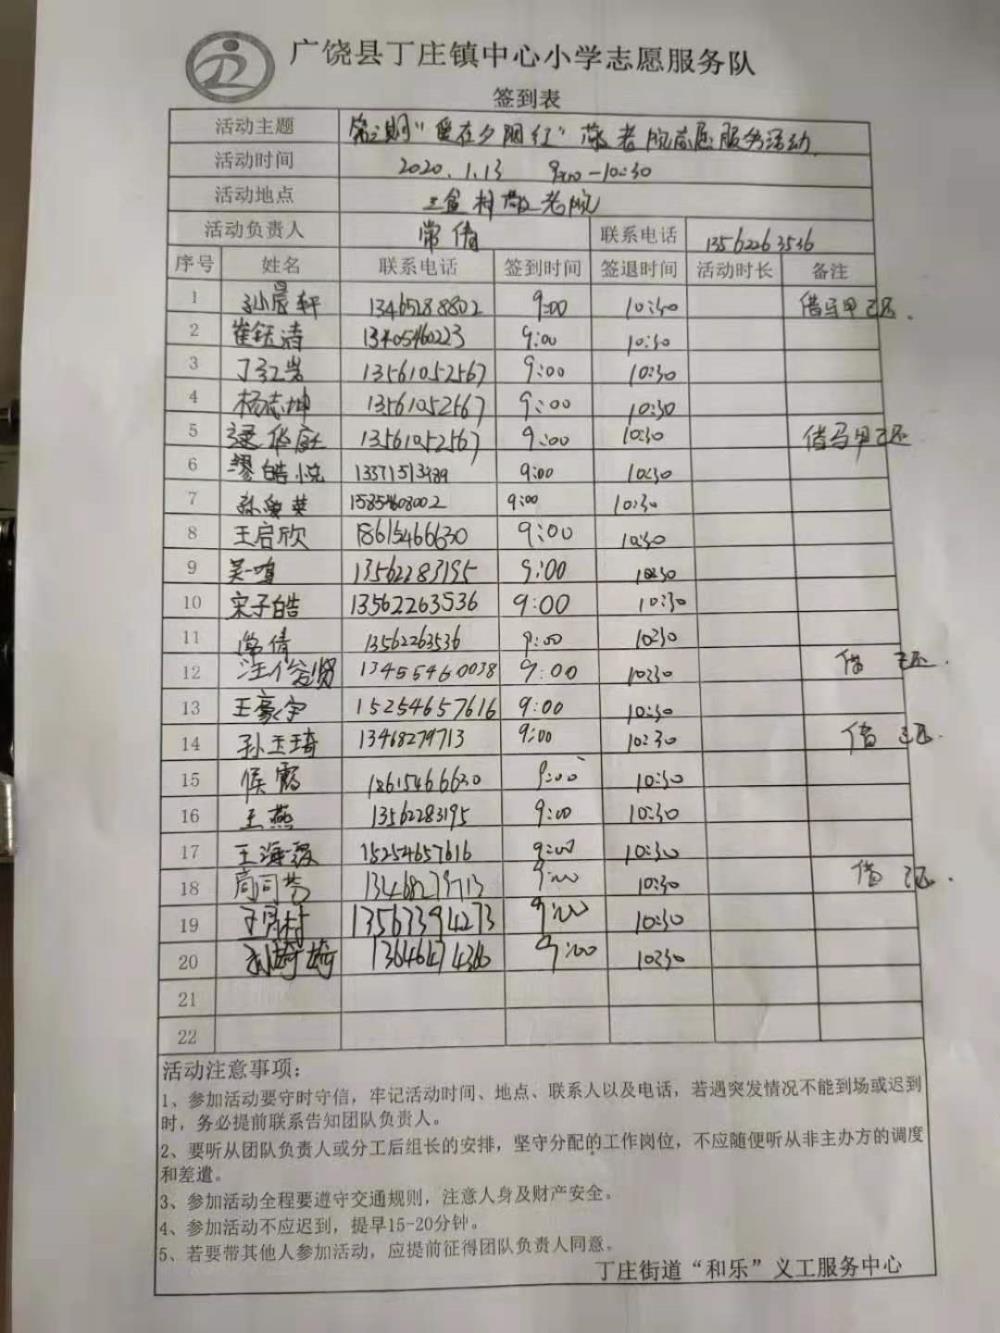 广饶县丁庄镇中心小学志愿服务队
签到表
活动主题 "爱在夕阳红" 敬老院志愿服务活动
活动时间 2020.1.13 9:00-10:30
活动地点 村敬老院
活动负责人 常倩 联系电话 13562263536
序号 姓名 联系电话 签到时间 签退时间 活动时长 备注
1 孙晨轩 13465288802 9:00 10:30 借马甲已还.
2 崔钰清 13405460223 9:00 10:30
3 丁红岩 13561052567 9:00 10:30
4 杨志坤 13561052567 9:00 10:30
5 13561052567 9:00 10:30 借马甲已还
6 皓悦 9:00 10:30
7 孙 英 15854608002 9:00 10:30
8 王启欣 18615466630 9:00 10:30
9 吴一鸣 13562283195 9:00 10:30
10 宋子皓 13562263536 9:00 10:30
11 常倩 13562263536 9:00 10:30
12 13455460038 9:00 10:30 借 已还.
13 王豪宇 15254657616 9:00 10:30
14 孙玉琦 13468279713 9:00 10:30 借 已还.
15 侯霞 18615466630 9:00 10:30
16 王燕 13562283195 9:00 10:30
17 王海霞 15254657616 9:00 10:30
18 周司芳 13468279713 9:00 10:30 借 已还.
19 13563394273 9:00 10:30
20 1364647436 9:00 10:30
21
22
活动注意事项：
1、参加活动要守时守信，牢记活动时间、地点、联系人以及电话，若遇突发情况不能到场或迟到
时，务必提前联系告知团队负责人。
2、要听从团队负责人或分工后组长的安排，坚守分配的工作岗位，不应随便听从非主办方的调度
和差遣。
3、参加活动全程要遵守交通规则，注意人身及财产安全。
4、参加活动不应迟到，提早15-20分钟。
5、若要带其他人参加活动，应提前征得团队负责人同意。
丁庄街道“和乐”义工服务中心